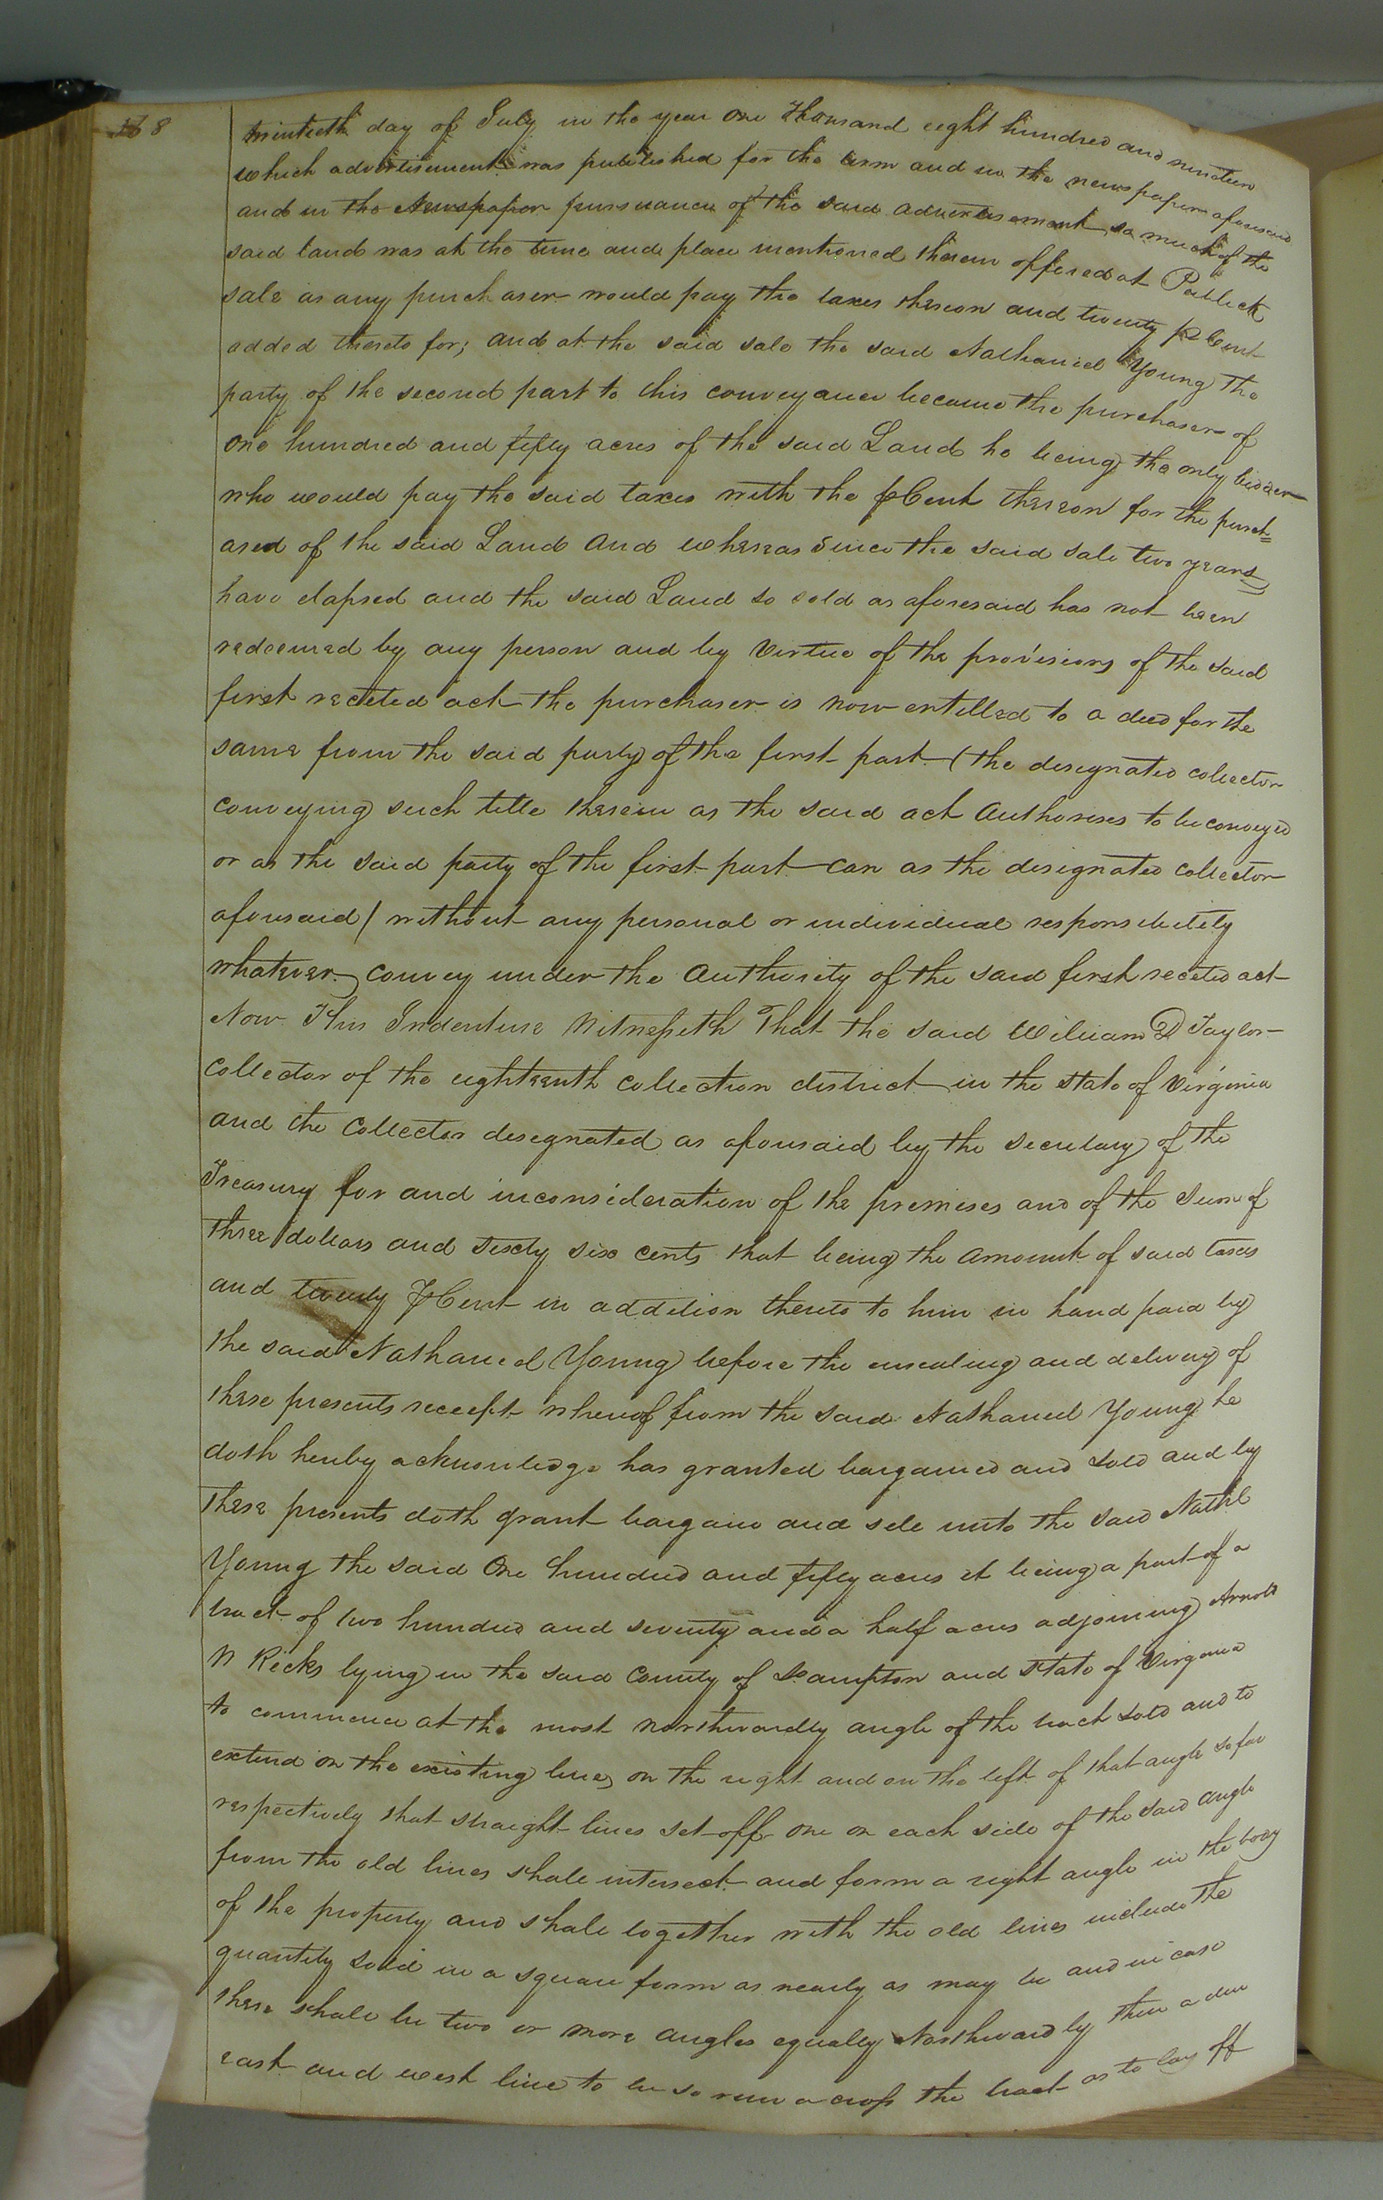 168
twintieth day of July in the year one Thousand eight hundred and nineteen
which advertisement was published for the term and in the newspapers aforesaid
and in the Newspaper pursuance of the said advertisement so much of the
said land was at the time and place mentioned therein offered at Publick
sale as any purchaser would pay the taxes thereon and twenty p Cent
added thereto for; and at the said sale the said Nathaniel Young the
party of the second part to this conveyance became the purchaser of
one hundred and fifty acres of the said Land he being the only bidder
who would pay the said taxes with the p Cent thereon for the purch=
ased of the said Land and whereas since the said sale two years
have elapsed and the said Land so sold as aforesaid has not been
redeemed by any person and by virtue of the provisions of the said
first recited act the purchaser is now entitled to a deed for the
same from the said party of the first part (the designated collector
conveying such title therein as the said act authorises to be conveyed
or as the said party of the first part can as the designated collector
aforesaid / without any personal or individual responsibility
whatever) convey under the authority of the said first recited act
Now This Indenture Witnesseth That the said William D Taylor
collector of the eighteenth collection district in the state of Virginia
and the Collector designated as aforesaid by the secretary of the
Treasury for and inconsideration of the premises and of the sum of
three dollars and sixty six cents that being the amount of said taxes
and twenty p Cent in addition thereto to him in hand paid by
the said Nathaniel Young before the ensealing and delivery of
these presents receept whereof from the said Nathaniel Young he
doth hereby acknowledge has granted bargained and sold and by
these presents doth grant bargain and sell unto the said Nathl
Young the said One hundred and fifty acres it being a part of a
tract of two hundred and seventy and a half acres adjoining Arnold
N Ricks lying in the said County of Hampton and State of Virginia
to commence at the most northwardly angle of the tract sold and to
extend on the existing lines on the right and on the left of that angle so far
respectively that straight lines set off one on each side of the said angle
from the old lines shall intersect and form a right angle in the body
of the property and shall together with the old lines include the
quantity sold in a square form as nearly as may be and in case
there shall be two or more angles equally Northwardly then a due
east and west line to be so run across the tract as to lay off